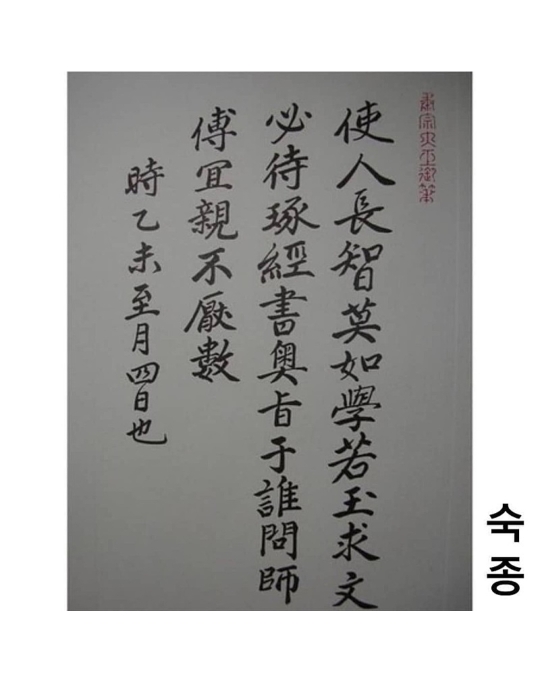 肅宗大王御筆
使人長智莫如學若玉求文
必待琢經書奧旨于誰問師
傅冝親不厭數
時乙未至月四日也
숙종